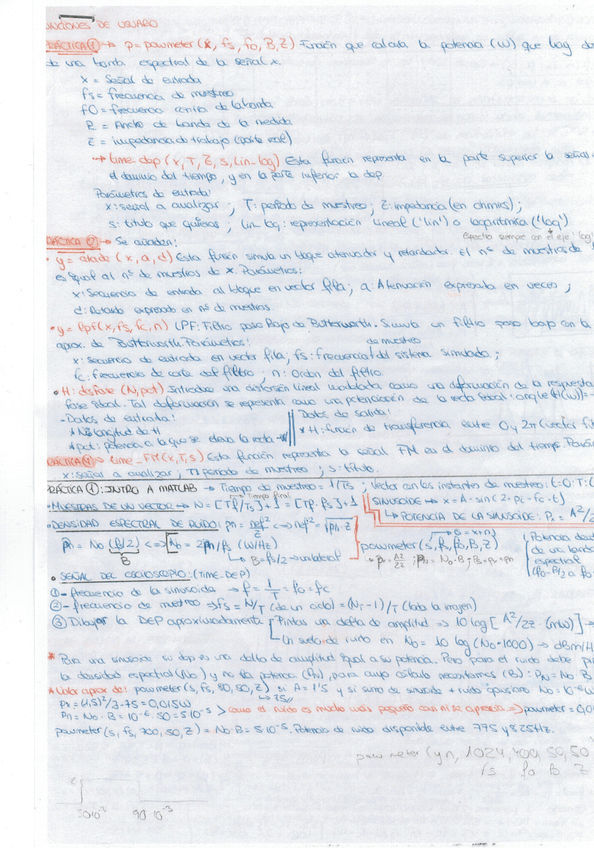 UNCIONES DE USUARIO
PRÁCTICA 1 → p = powmeter (x, fs, f0, B, Z) Función que calcula la potencia (W) que hay de
de una banda espectral de la señal x.
x = Señal de entrada
fs = frecuencia de muestreo
f0 = frecuencia central de la banda
B = Ancho de banda de la medida
Z = impedancia de trabajo (parte real)
→ time-dep (x, T, Z, s, Lin-log) Esta función representa en la parte superior la señal
el dominio del tiempo, y en la parte inferior la dep
Parámetros de entrada:
x: señal a analizar; T: período de muestreo; Z: impedancia (en ohmios);
s: título que quieras; lin-log: representación lineal ('lin') o logarítmica ('log')
espectro siempre con el eje 'log'
PRÁCTICA 2 → Se añaden:
• y = atade (x, a, d) Esta función simula un bloque atenuador y retardador. El nº de muestras de
es igual al nº de muestras de x. Parámetros:
x: Secuencia de entrada al bloque en vector fila; a: Atenuación expresada en veces;
d: Retardo expresado en nº de muestras.
• y = lpf (x, fs, fc, n) LPF: Filtro paso Bajo de Butterworth. Simula un filtro paso bajo con la
aprox. de Butterworth. Parámetros:
de muestreo
x: secuencia de entrada en vector fila; fs: frecuencia del sistema simulado;
fc: frecuencia de corte del filtro; n: Orden del filtro
• H: desfase (N, pot) Introduce una distorsión lineal modelada como una deformación de la respuesta
fase ideal. Tal deformación se representa como una potenciación de la recta ideal: angle (H(w)) = -
- Datos de entrada:
* N: longitud de H
* pot: potencia a la que se eleva la recta -w
- Datos de salida:
* H: función de transferencia entre 0 y 2π (vector fi
PRÁCTICA 4 → time-FM (x, T, s) Esta función representa la señal FM en el dominio del tiempo. Parám
x: señal a analizar, T: período de muestreo; s: título.
PRÁCTICA 1: INTRO A MATLAB → Tiempo de muestreo = 1/Ts; Vector con los instantes de muestreo: t = 0:T:(
→ Tiempo final
• MUESTRAS DE UN VECTOR → N = [Tf/Ts] + 1 = [Tf · fs] + 1
SINUSOIDE → x = A · sin (2 · pi · fo · t)
↳ POTENCIA DE LA SINUSOIDE: Px = A²/2
• DENSIDAD ESPECTRAL DE RUIDO:
Pn = No (fs/2) <=> No = 2Pn/fs (W/Hz)
B
↳ B = fs/2 → unilateral
powmeter (s, fs, f0, B, Z)
Potencia de
de una banda
espectral
• SEÑAL DEL OSCILOSCOPIO: (TIME-DEP)
① - frecuencia de la sinusoide → f = 1/T = f0 = fc
② - frecuencia de muestreo → fs = N/T (de un ciclo) = (Nt - 1)/T (toda la imagen)
③ Dibujar la DEP aproximadamente
Pintas una delta de amplitud → 10 log [A²/2Z · (mW)] →
Un suelo de ruido en No = 10 log (No · 1000) → dBm/H
* Para una sinusoide su dep es una delta de amplitud igual a su potencia. Pero para el ruido debe
la densidad espectral (No) y no la potencia (Pn), para cuyo cálculo necesitamos (B): Pn = No · B
* Valor aprox. de: powmeter (s, fs, 50, 50, Z) si A = 1'5 y si sumo de sinusoide + ruido gaussiano No = 10⁻⁶ W
Px = (1,5)²/2·75 = 0,015 W
Pn = No · B = 10⁻⁶ · 50 = 5·10⁻⁵ > como el ruido es mucho más pequeño casi ni se aprecia ⇒ powmeter = 0,0
powmeter (s, fs, 800, 50, Z) = No · B = 5·10⁻⁵. Potencia de ruido disponible entre 775 y 825 Hz.
powmeter (yn, 1024, 400, 50, 50
fs f0 B Z